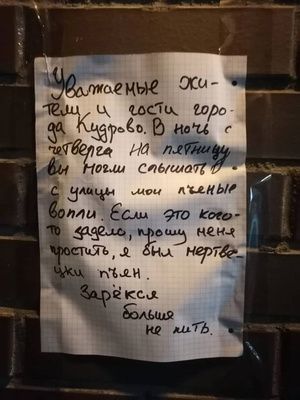 Уважаемые жи-
тели и гости горо-
да Кудрово. В ночь с
четверга на пятницу
вы могли слышать
с улицы мои пьяные
вопли. Если это кого-
то задело, прошу меня
простить, я был мертве-
цки пьян.
Зарёкся
больше
не пить.